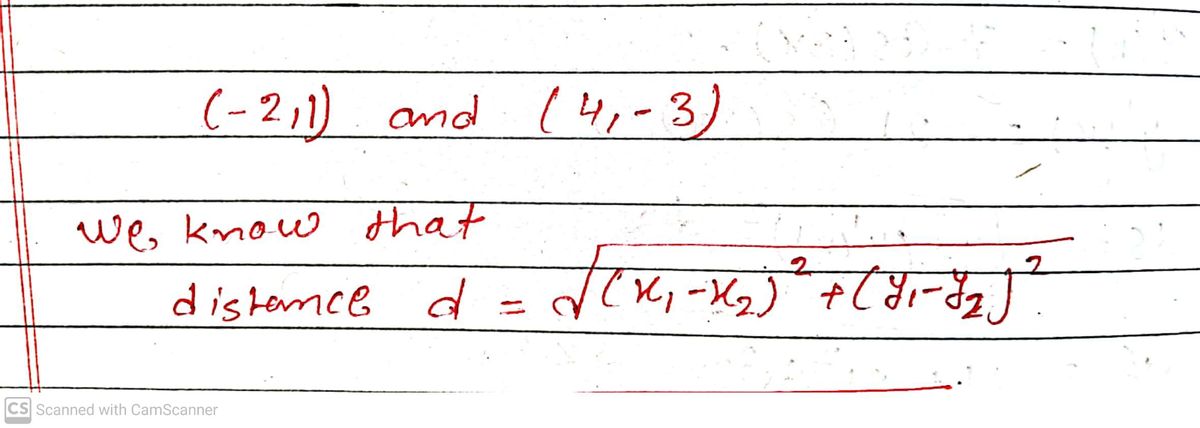 (-2,1) and (4,-3)
we, know that
distance d = √(x₁-x₂)² + (y₁-y₂)².
CS Scanned with CamScanner